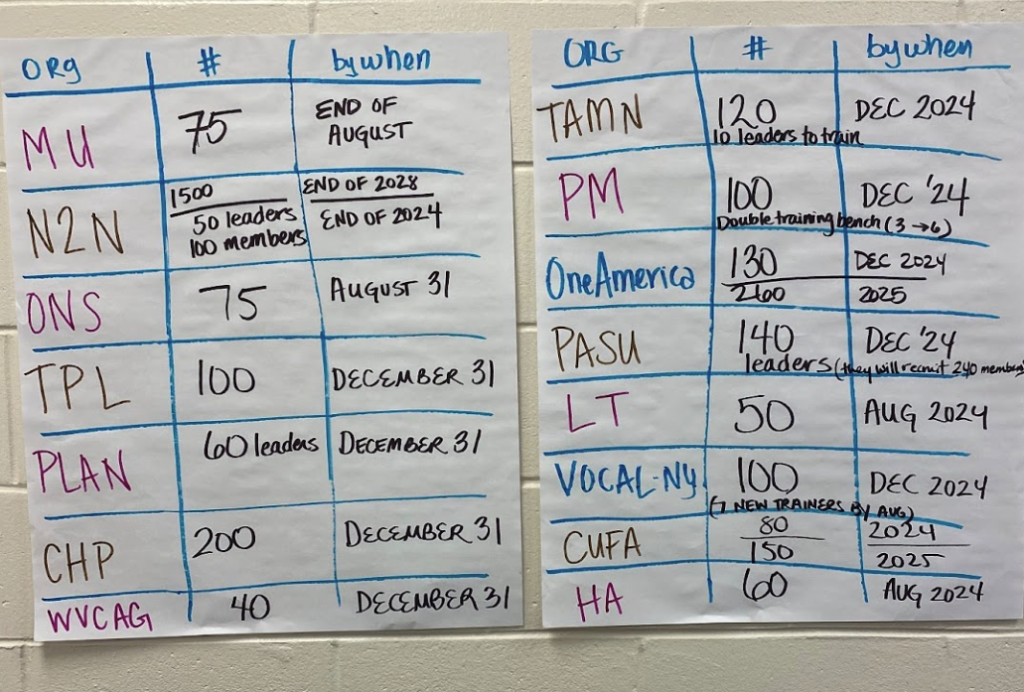 ORG # by when
MU 75 END OF
AUGUST
N2N 1500 END OF 2028
50 leaders END OF 2024
100 members
ONS 75 AUGUST 31
TPL 100 DECEMBER 31
PLAN 60 leaders DECEMBER 31
CHP 200 DECEMBER 31
WVCAG 40 DECEMBER 31
ORG # by when
TAMN 120 DEC 2024
10 leaders to train
PM 100 DEC '24
Double training bench (3 → 6)
OneAmerica 130 DEC 2024
260 2025
PASU 140 DEC '24
leaders (they will recruit 240 members)
LT 50 AUG 2024
VOCAL-NY 100 DEC 2024
(7 NEW TRAINERS BY AUG)
CUFA 80 2024
150 2025
HA 60 AUG 2024